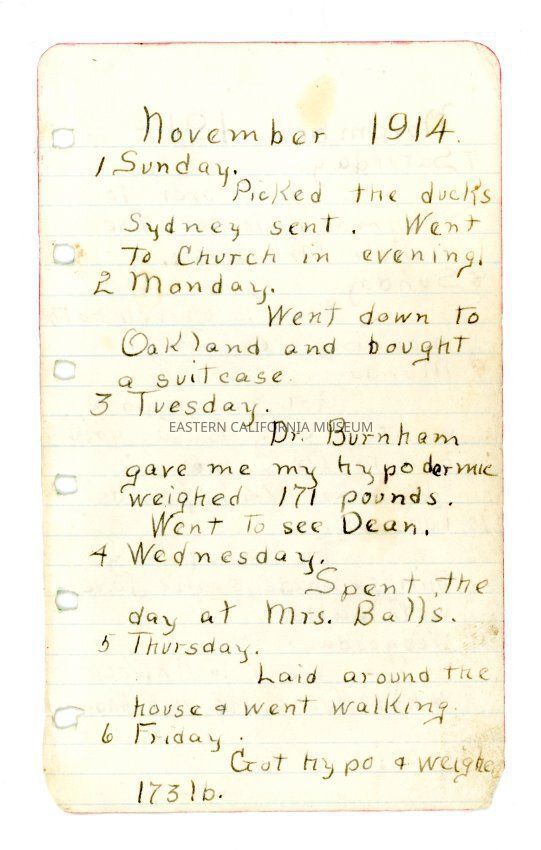 November 1914.
1 Sunday.
Picked the ducks
Sydney sent. Went
to Church in evening.
2 Monday.
Went down to
Oakland and bought
a suitcase.
3 Tuesday.
EASTERN CALIFORNIA MUSEUM
Dr. Burnham
gave me my hypodermic
weighed 171 pounds.
Went to see Dean.
4 Wednesday.
Spent the
day at Mrs. Balls.
5 Thursday.
Laid around the
house & went walking.
6 Friday.
Got hypo & weighe
173 lb.